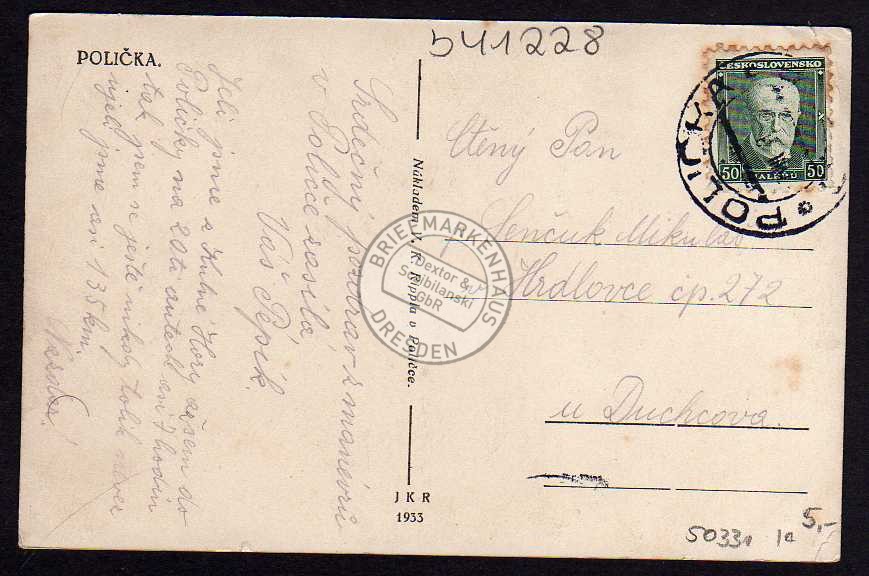 541228
POLIČKA.
ČESKOSLOVENSKO
50 HALÉŘŮ 50
POLIČKA
Srdečný pozdrav z manévrů
v Poličce zasílá
Váš Pepík.
Jeli jsme z Kutné Hory až sem do
Poličky na 20ti autech asi 7 hodin
tak jsem se ještě nikdy tolik
ujeli jsme asi 135 km.
Nazdar!
Nákladem V. K. Rippla v Poličce.
J K R
1933
Ctěný Pán
Senčuk Mikuláš
Hrdlovce čp. 272
u Duchcova.
BRIEFMARKENHAUS
Dextor &
Stribilanski
GbR
DRESDEN
50331 Ia
5,-